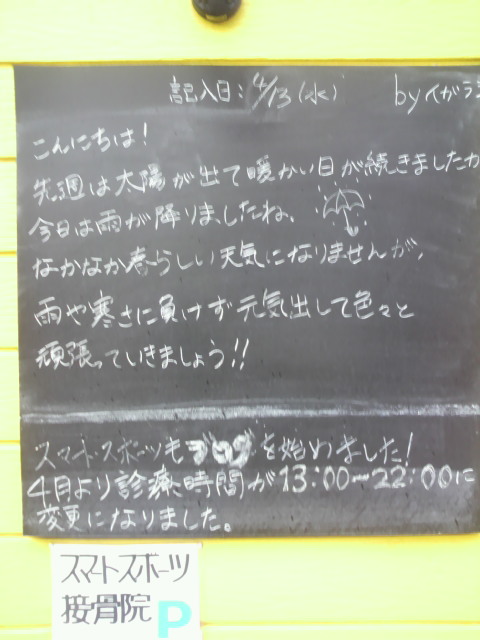 記入日:4/13(水) by イガラ
こんにちは!
先週は太陽が出て暖かい日が続きましたが
今日は雨が降りましたね、
なかなか春らしい天気になりませんが、
雨や寒さに負けず元気出して色々と
頑張っていきましょう!!
スマートスポーツもブログを始めました!
4月より診療時間が13:00-22:00に
変更になりました。
スマートスポーツ
接骨院 P